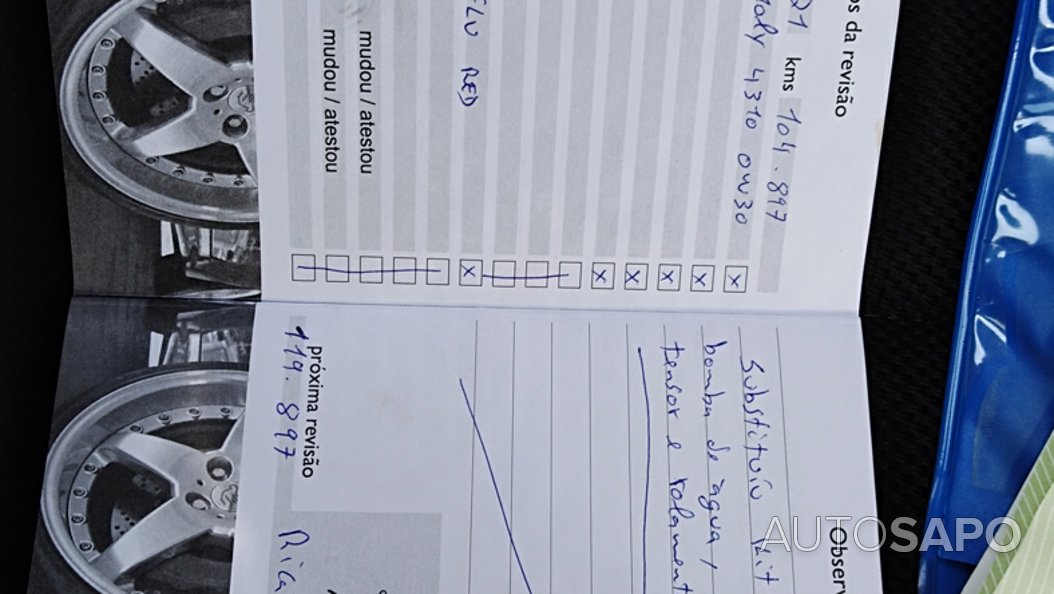 os da revisão
21 kms 104.897
4310 0W30
RED
mudou / atestou
mudou / atestou
Observ
Substituiu Kit
bomba de água,
tensor e rolament
próxima revisão
119.897
AUTOSAPO